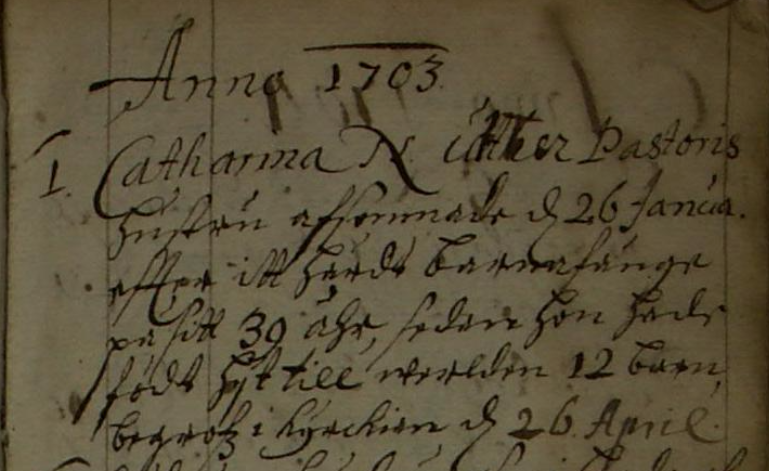 Anno 1703
1. Catharina Pastoris
hustru afsomnade d 26 Janua.
effter itt hardt barnafänge
på sitt 39 åhr, sedan hon hade
födt hijt till werlden 12 barn,
begrofz i kyrckian d 26 April.